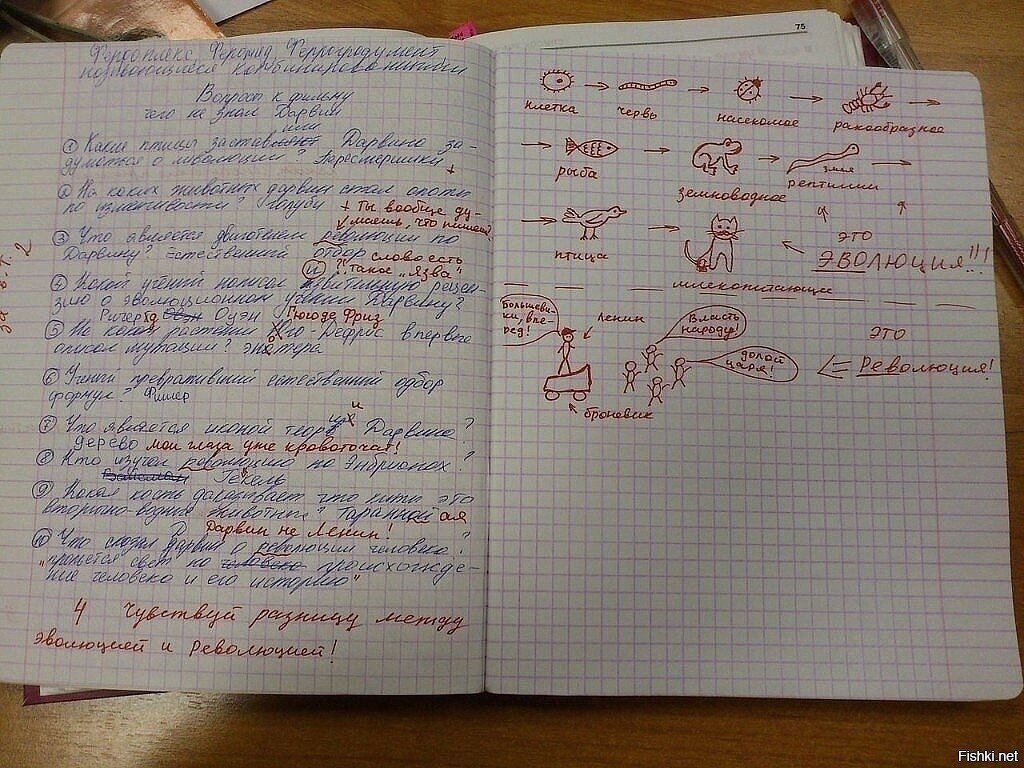 75
Вопросы к фильму
чего не знал Дарвин
или
① Какие птицы заставили Дарвина за-
думаться о революции? Пересмешники +
② На каких животных дарвин стал опыты
по изменчивости? Голуби + ты вообще ду-
маешь, что пишешь
③ Что является двигателем революции по
Дарвину? естественный отбор слово есть
?! такое „язва"
④ Какой учёний написал
зию о эволюционном учении Дарвину?
Ричард Оуэн Гюго де Фриз
⑤ На каком растении Гюго-Дефрис впервые
описал мутации? энотера
⑥ Учений превративший естественный одбор
формул? Фишер
⑦ Что является иконой теории Дарвина?
дерево мои глаза уже кровоточат!
⑧ Кто изучал революцию по Энбрионах?
Геккель
⑨ Какая кость доказывает что киты это
вторично-водные животные? Таранная
Дарвин не Ленин!
⑩ Что сказал дарвин о революции человека?
"прольется свет на человека происхожде-
ние человека и его историю"
4 Чувствуй разницу между
эволюцией и революцией!
клетка червь насекомое ракообразное
рыба земноводное змея рептилии
птица это
ЭВОЛЮЦИЯ!!!
млекопитающие
Большеви-
ки, впе-
ред!
Ленин
Власть
народу!
долой
царя!
это
Революция!
броневик
Fishki.net